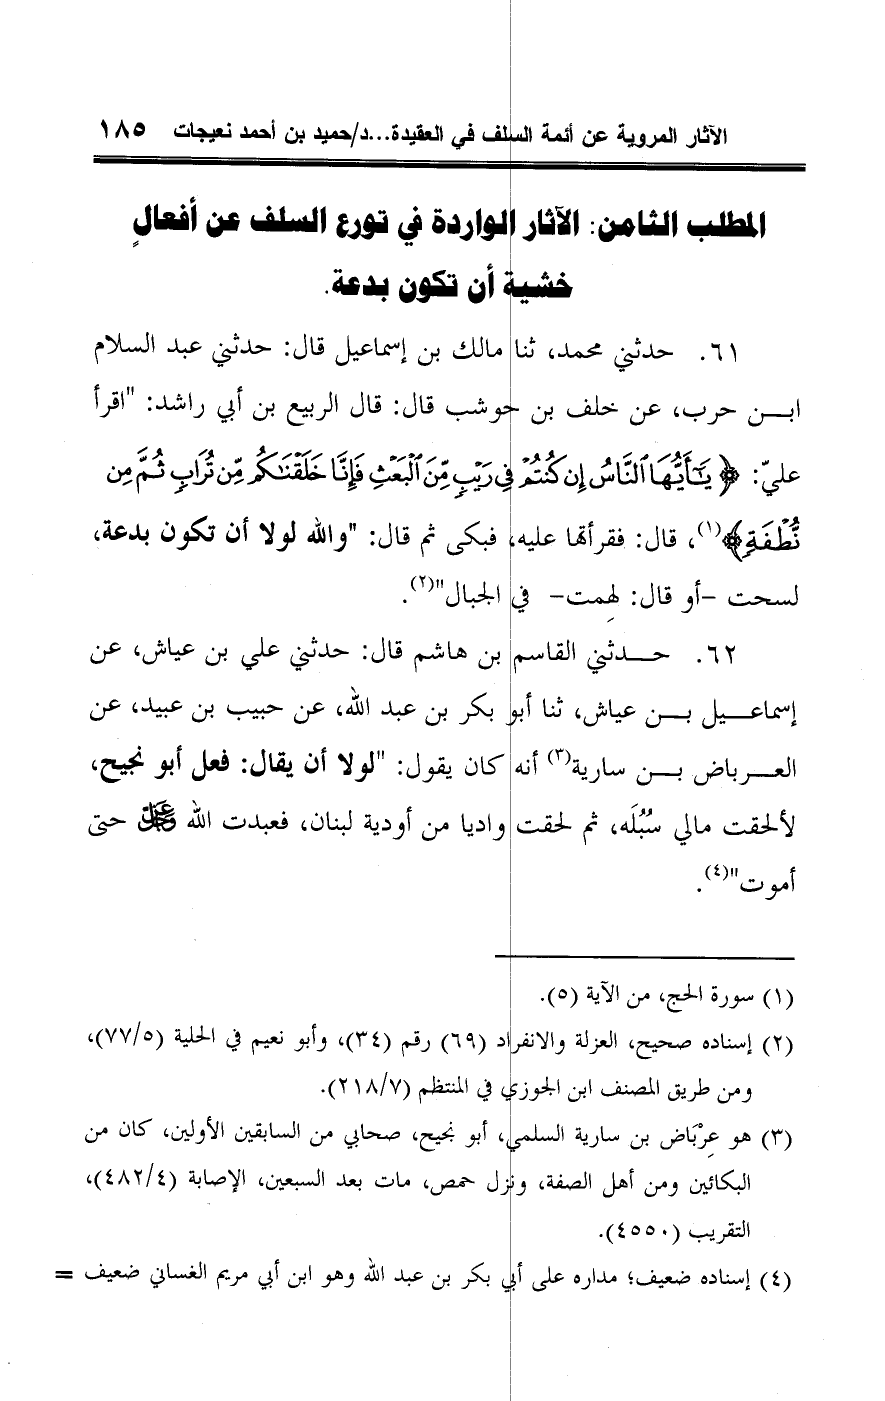 الآثار المروية عن أئمة السلف في العقيدة...د/حميد بن أحمد نعيجات ١٨٥
المطلب الثامن: الآثار الواردة في تورع السلف عن أفعالٍ
خشية أن تكون بدعة.
٦١. حدثني محمد، ثنا مالك بن إسماعيل قال: حدثني عبد السلام
ابن حرب، عن خلف بن حوشب قال: قال الربيع بن أبي راشد: "اقرأ
عليّ: ﴿يَٰٓأَيُّهَا ٱلنَّاسُ إِن كُنتُمْ فِي رَيْبٍ مِّنَ ٱلْبَعْثِ فَإِنَّا خَلَقْنَٰكُم مِّن تُرَابٍ ثُمَّ مِن
نُّطْفَةٍ﴾(١)، قال: فقرأتها عليه، فبكى ثم قال: "والله لولا أن تكون بدعة،
لسحت -أو قال: لهِمت- في الجبال"(٢).
٦٢. حدثني القاسم بن هاشم قال: حدثني علي بن عياش، عن
إسماعيل بن عياش، ثنا أبو بكر بن عبد الله، عن حبيب بن عبيد، عن
العرباض بن سارية(٣) أنه كان يقول: "لولا أن يقال: فعل أبو نجيح،
لألحقت مالي سُبُلَه، ثم لحقت واديا من أودية لبنان، فعبدت الله عَزَّوَجَلَّ حتى
أموت"(٤).
(١) سورة الحج، من الآية (٥).
(٢) إسناده صحيح، العزلة والانفراد (٦٩) رقم (٣٤)، وأبو نعيم في الحلية (٧٧/٥)،
ومن طريق المصنف ابن الجوزي في المنتظم (٢١٨/٧).
(٣) هو عِرْبَاض بن سارية السلمي، أبو نجيح، صحابي من السابقين الأولين، كان من
البكائين ومن أهل الصفة، ونزل حمص، مات بعد السبعين، الإصابة (٤٨٢/٤)،
التقريب (٤٥٥٠).
(٤) إسناده ضعيف؛ مداره على أبي بكر بن عبد الله وهو ابن أبي مريم الغساني ضعيف =